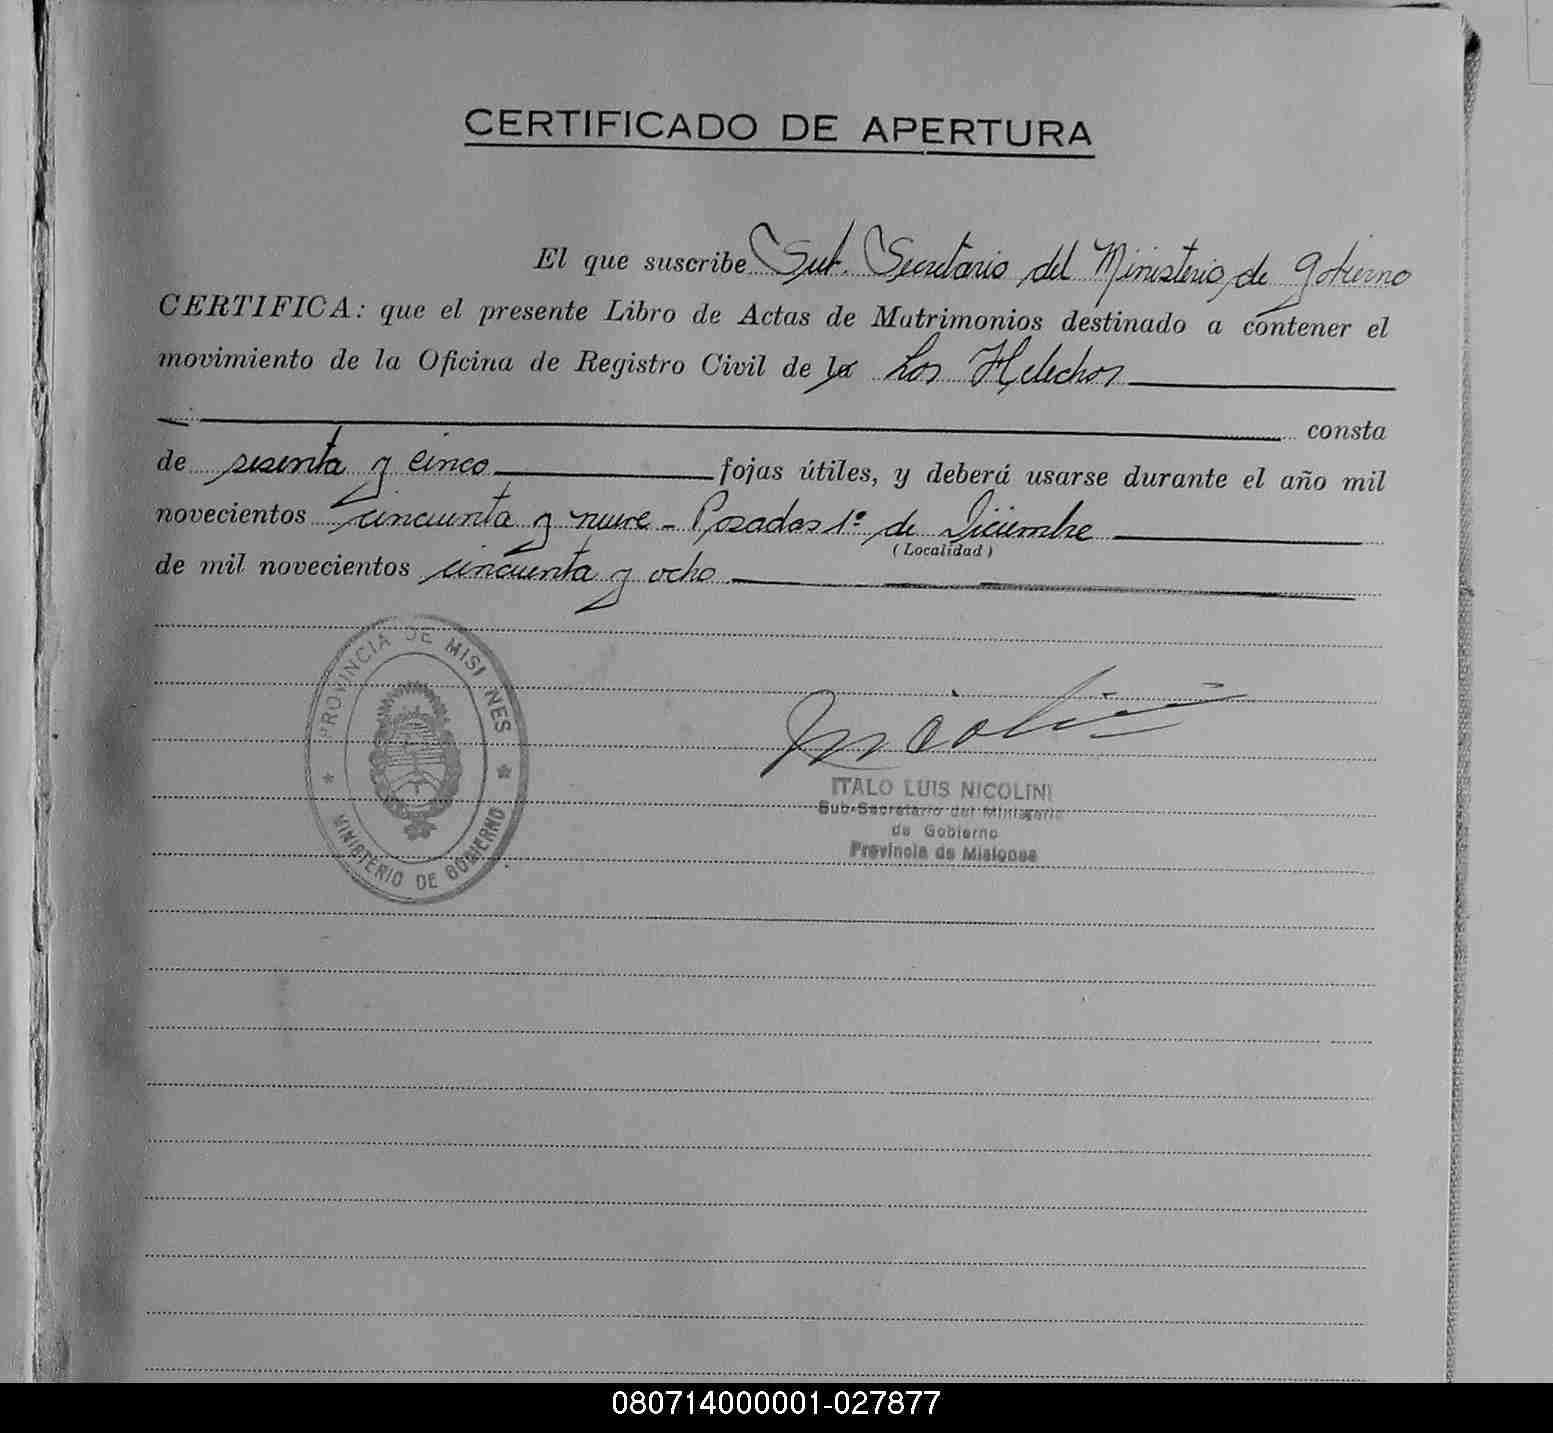 CERTIFICADO DE APERTURA
El que suscribe Sub. Secretario del Ministerio de Gobierno
CERTIFICA: que el presente Libro de Actas de Matrimonios destinado a contener el
movimiento de la Oficina de Registro Civil de la Los Helechos
consta
de sesenta y cinco fojas útiles, y deberá usarse durante el año mil
novecientos cincuenta y nueve - Posadas 1º de Diciembre
(Localidad)
de mil novecientos cincuenta y ocho
PROVINCIA DE MISI NES
MINISTERIO DE GOBIERNO
Nicolini
ITALO LUIS NICOLINI
Sub-Secretario del Ministerio
de Gobierno
Provincia de Misiones
080714000001-027877